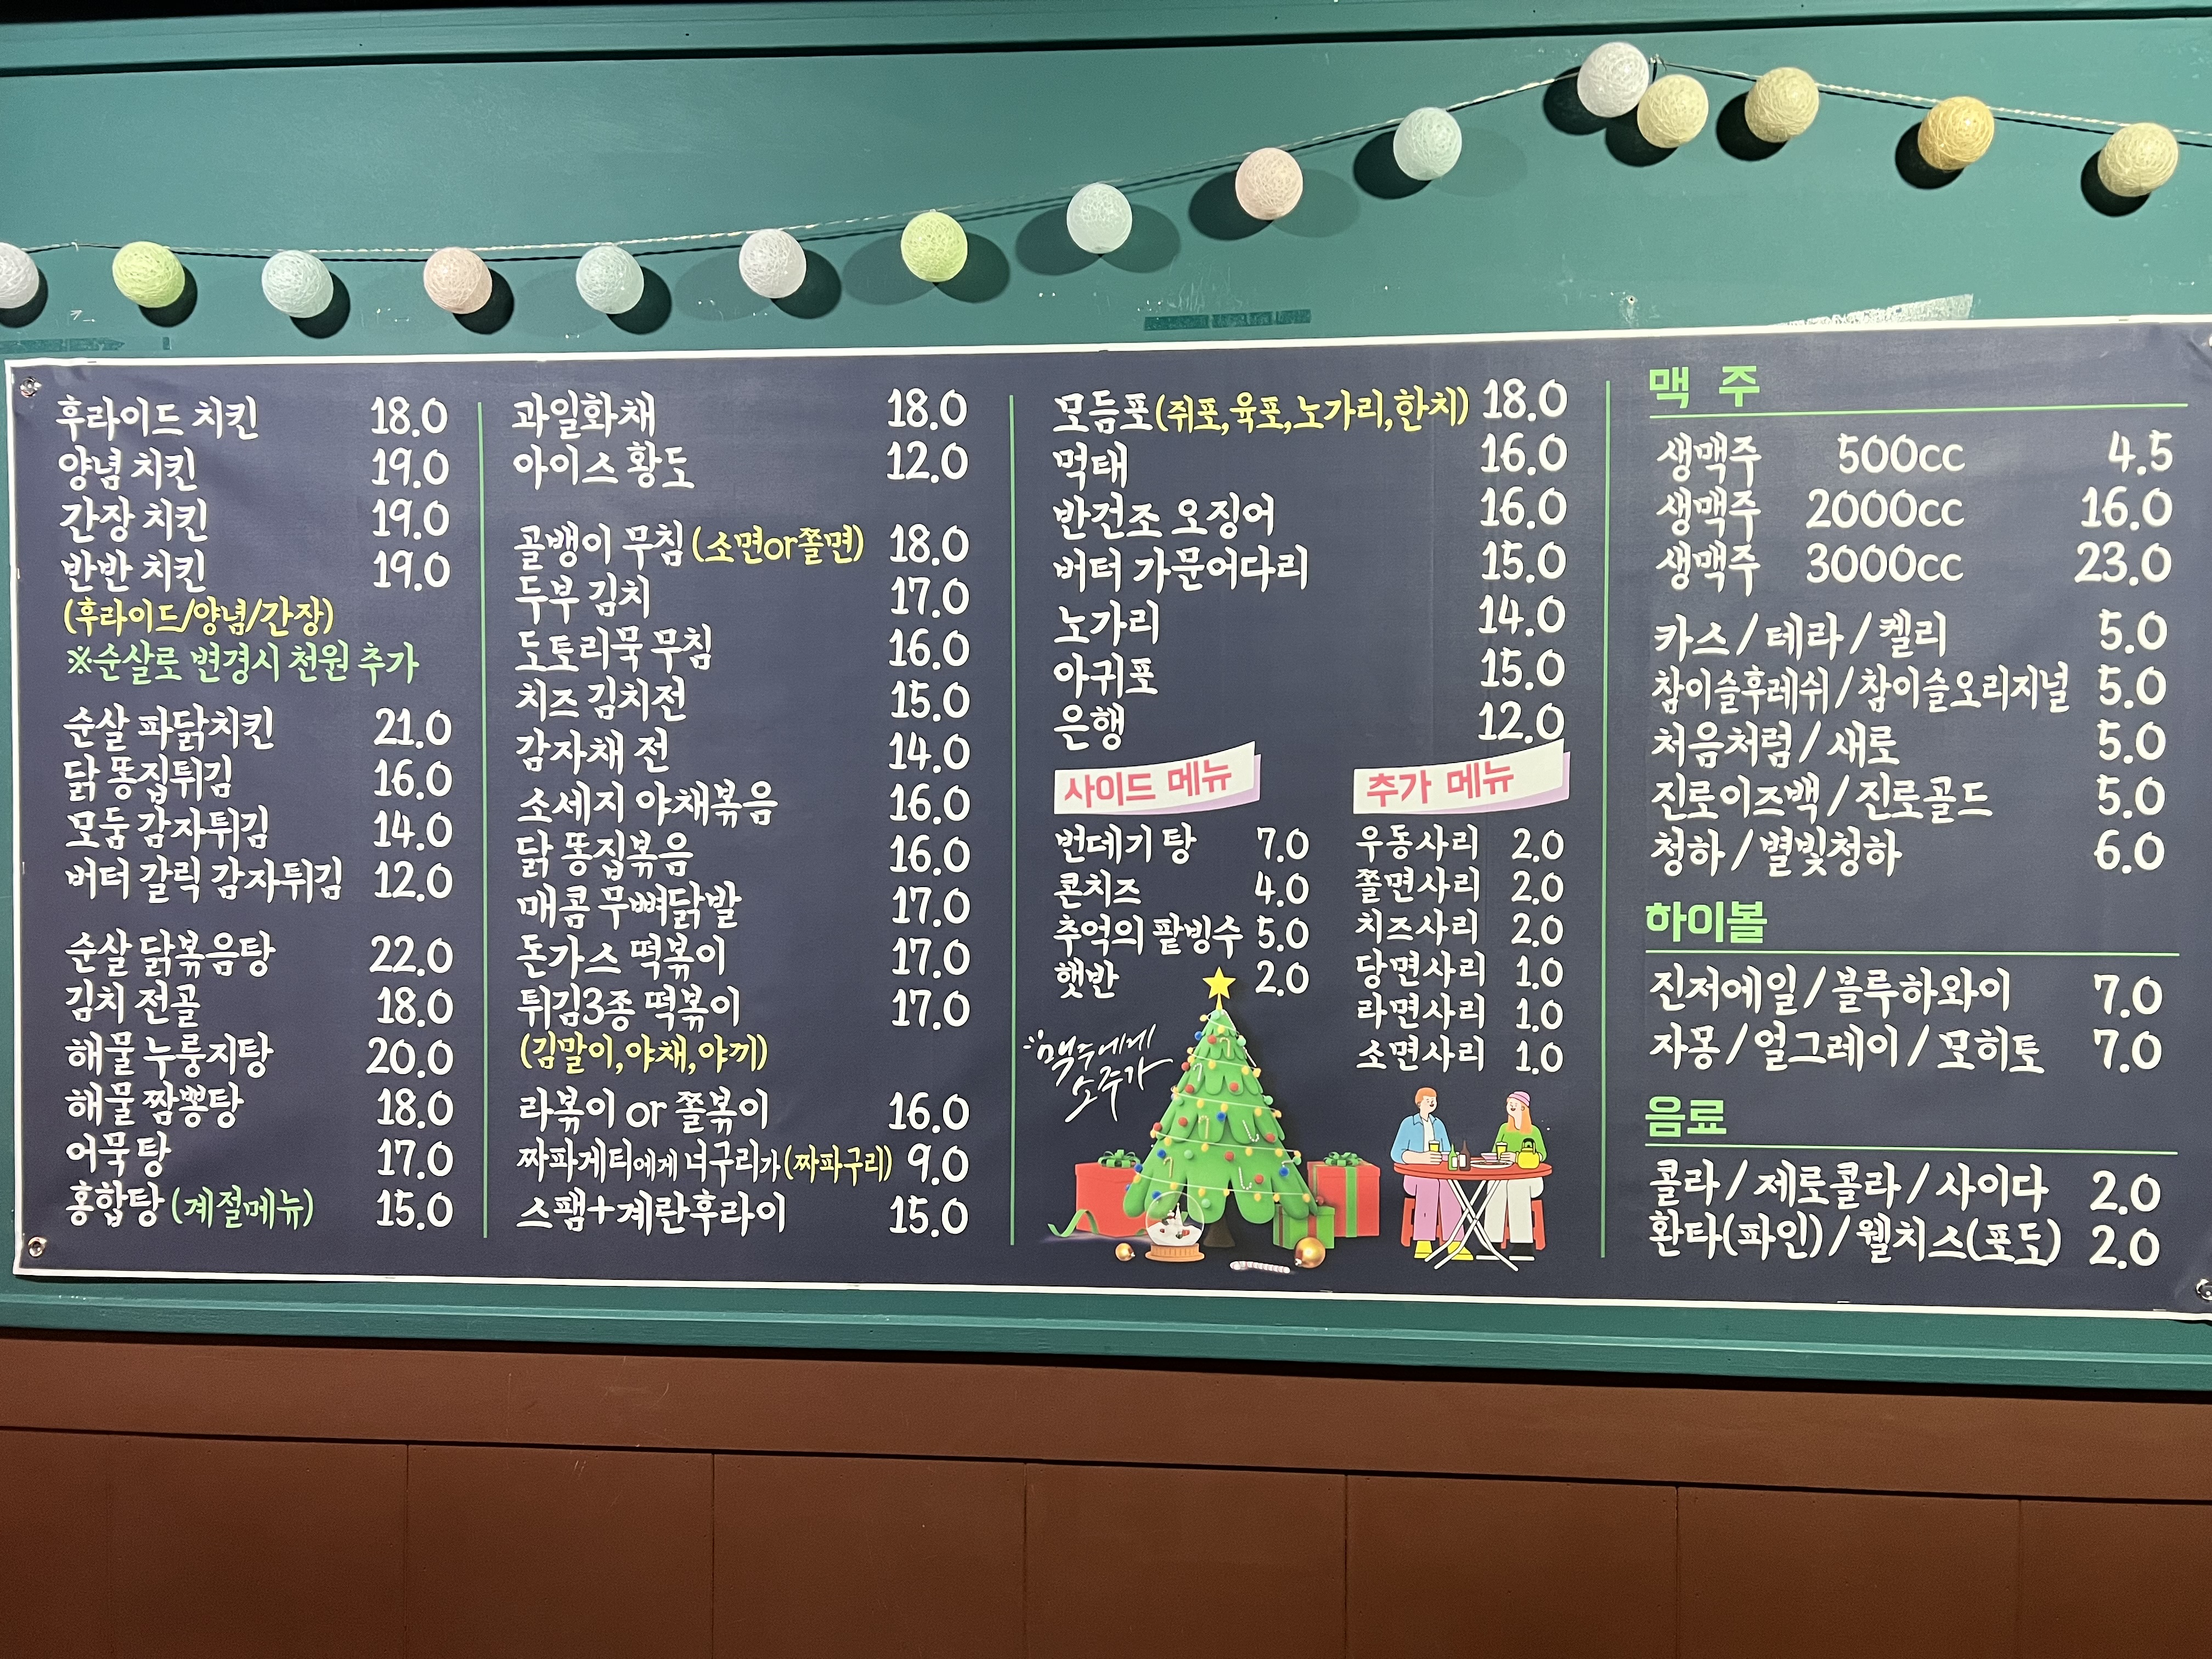 후라이드 치킨 18.0
양념 치킨 19.0
간장 치킨 19.0
반반 치킨 19.0
(후라이드/양념/간장)
※순살로 변경시 천원 추가
순살 파닭치킨 21.0
닭 똥집튀김 16.0
모둠 감자튀김 14.0
버터 갈릭 감자튀김 12.0
순살 닭볶음탕 22.0
김치 전골 18.0
해물 누룽지탕 20.0
해물 짬뽕탕 18.0
어묵탕 17.0
홍합탕 (계절메뉴) 15.0
과일화채 18.0
아이스 황도 12.0
골뱅이 무침 (소면or쫄면) 18.0
두부 김치 17.0
도토리묵 무침 16.0
치즈 김치전 15.0
감자채 전 14.0
소세지 야채볶음 16.0
닭 똥집볶음 16.0
매콤 무뼈닭발 17.0
돈가스 떡볶이 17.0
튀김3종 떡볶이 17.0
(김말이,야채,야끼)
라볶이 or 쫄볶이 16.0
짜파게티에게 너구리가 (짜파구리) 9.0
스팸+계란후라이 15.0
모듬포(쥐포,육포,노가리,한치) 18.0
먹태 16.0
반건조 오징어 16.0
버터 가문어다리 15.0
노가리 14.0
아귀포 15.0
은행 12.0
사이드 메뉴
번데기 탕 7.0
콘치즈 4.0
추억의 팥빙수 5.0
햇반 2.0
맥주에게
소주가
추가 메뉴
우동사리 2.0
쫄면사리 2.0
치즈사리 2.0
당면사리 1.0
라면사리 1.0
소면사리 1.0
맥 주
생맥주 500cc 4.5
생맥주 2000cc 16.0
생맥주 3000cc 23.0
카스 / 테라 / 켈리 5.0
참이슬후레쉬 / 참이슬오리지널 5.0
처음처럼 / 새로 5.0
진로이즈백 / 진로골드 5.0
청하 / 별빛청하 6.0
하이볼
진저에일 / 블루하와이 7.0
자몽 / 얼그레이 / 모히토 7.0
음료
콜라 / 제로콜라 / 사이다 2.0
환타(파인) / 웰치스(포도) 2.0